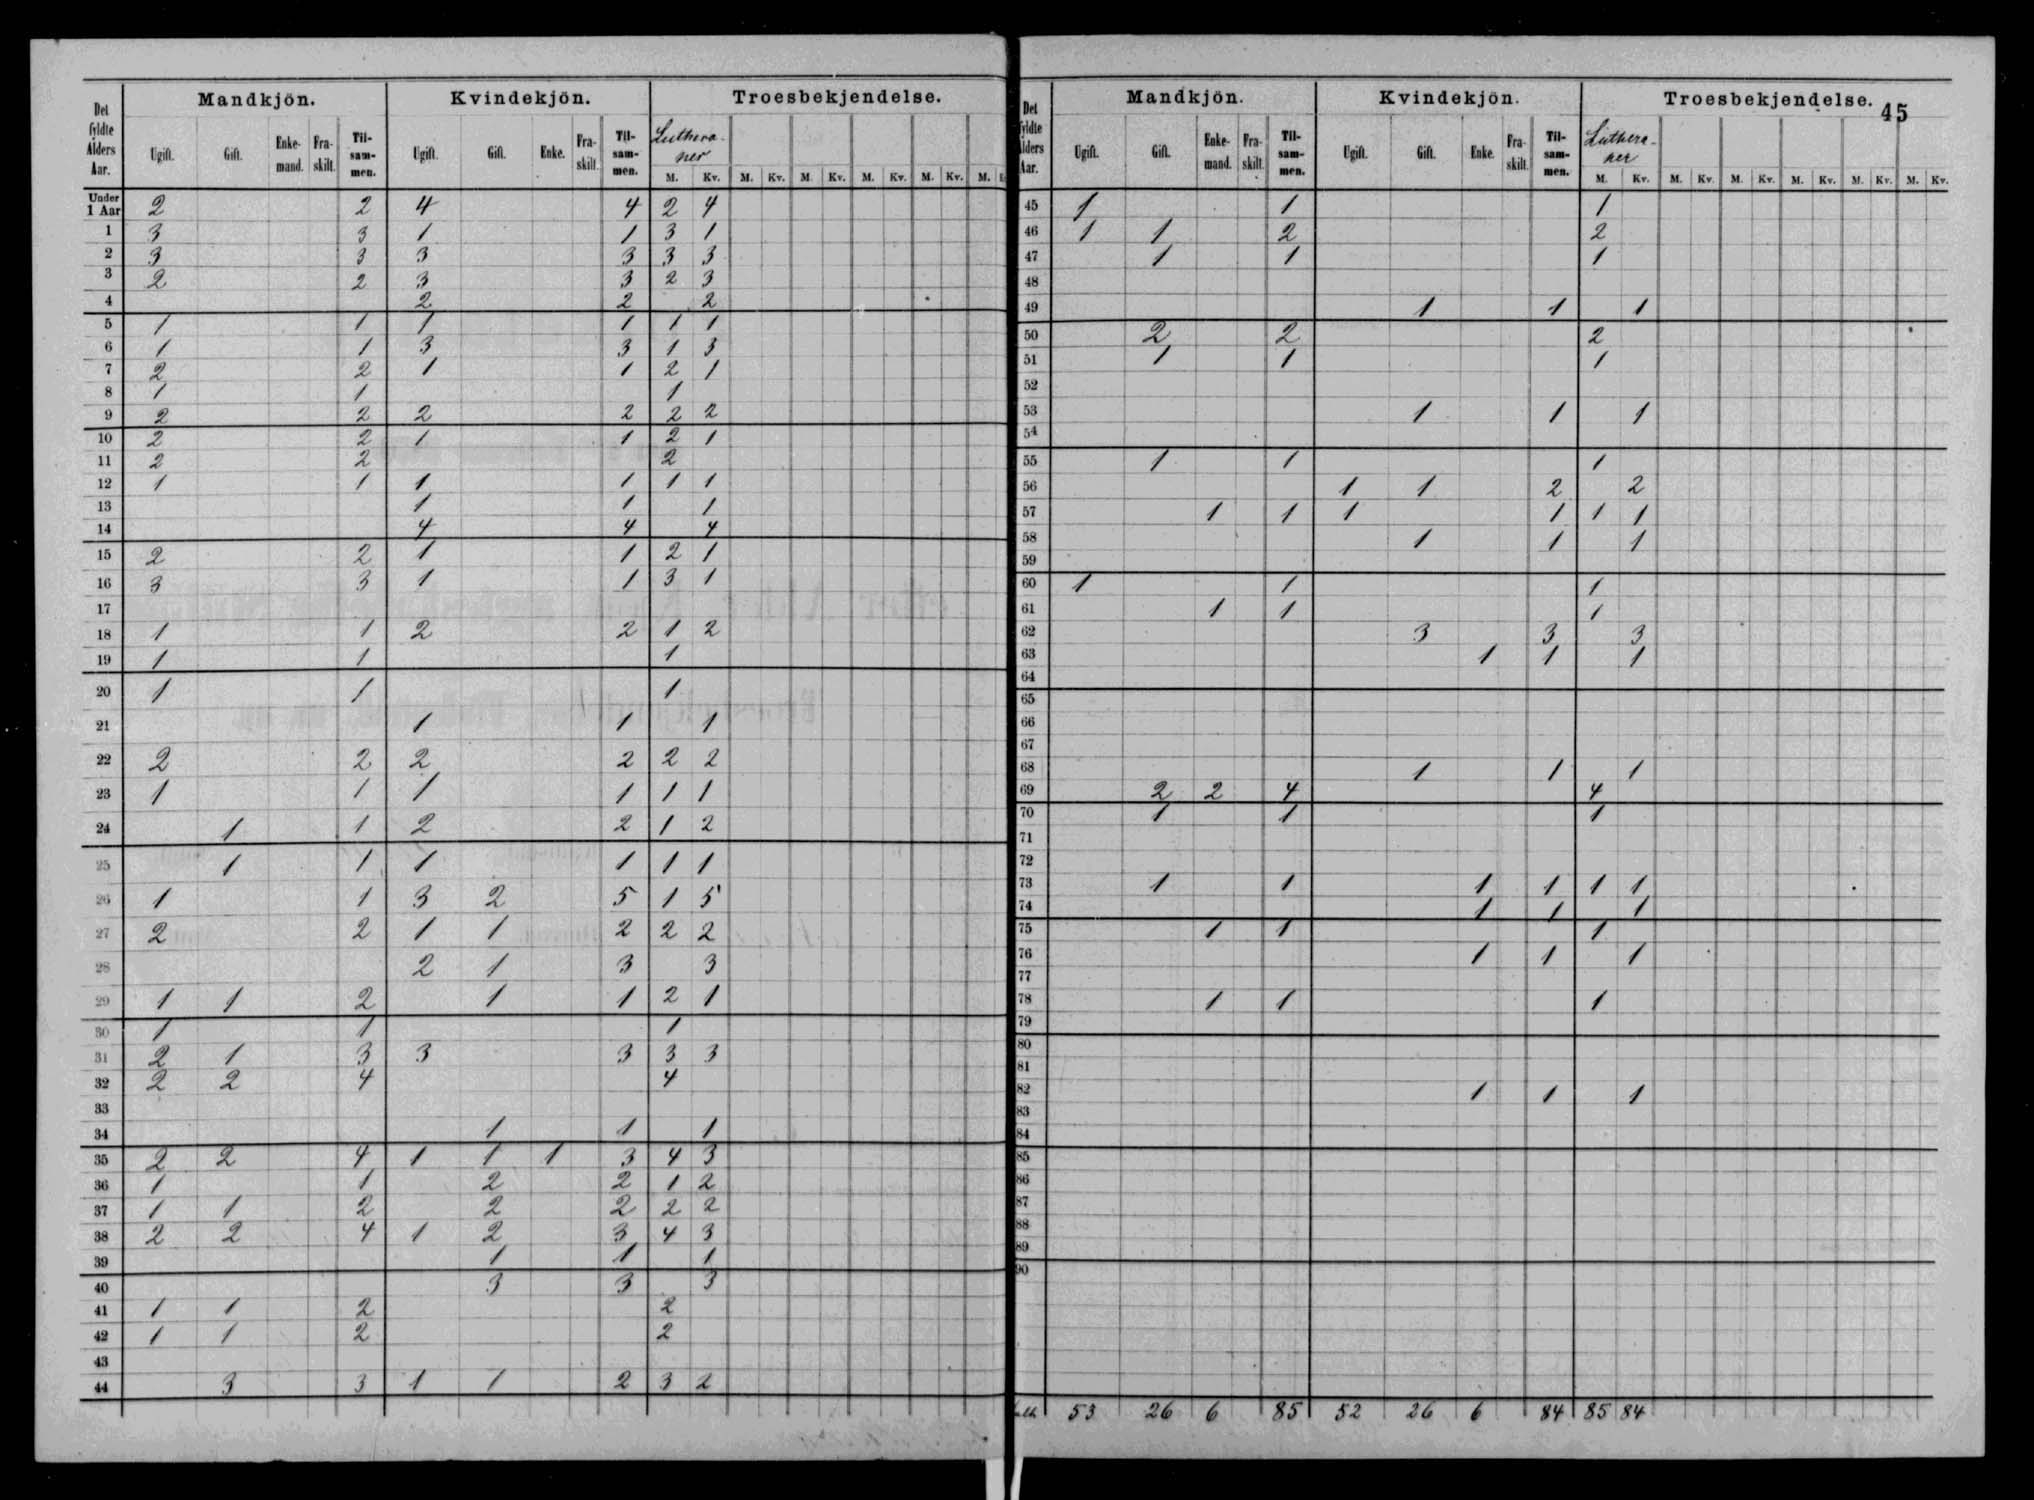 45
Det fyldte Alders Aar. Mandkjön. Kvindekjön. Troesbekjendelse.
Ugift. Gift. Enke-mand. Fra-skilt. Til-sam-men. Ugift. Gift. Enke. Fra-skilt. Til-sam-men. Luthera-ner
M. Kv. M. Kv. M. Kv. M. Kv. M. Kv. M.
Under 1 Aar 2 2 4 4 2 4
1 3 3 1 1 3 1
2 3 3 3 3 3 3
3 2 2 3 3 2 3
4 2 2 2
5 1 1 1 1 1 1
6 1 1 3 3 1 3
7 2 2 1 1 2 1
8 1 1 1
9 2 2 2 2 2 2
10 2 2 1 1 2 1
11 2 2 2
12 1 1 1 1 1 1
13 1 1 1
14 4 4 4
15 2 2 1 1 2 1
16 3 3 1 1 3 1
17
18 1 1 2 2 1 2
19 1 1 1
20 1 1 1
21 1 1 1
22 2 2 2 2 2 2
23 1 1 1 1 1 1
24 1 1 2 2 1 2
25 1 1 1 1 1 1
26 1 1 3 2 5 1 5
27 2 2 1 1 2 2 2
28 2 1 3 3
29 1 1 2 1 1 2 1
30 1 1 1
31 2 1 3 3 3 3 3
32 2 2 4 4
33
34 1 1 1
35 2 2 4 1 1 1 3 4 3
36 1 1 2 2 1 2
37 1 1 2 2 2 2 2
38 2 2 4 1 2 3 4 3
39 1 1 1
40 3 3 3
41 1 1 2 2
42 1 1 2 2
43
44 3 3 1 1 2 3 2
Det fyldte Alders Aar. Mandkjön. Kvindekjön. Troesbekjendelse.
Ugift. Gift. Enke-mand. Fra-skilt. Til-sam-men. Ugift. Gift. Enke. Fra-skilt. Til-sam-men. Luthera-ner
M. Kv. M. Kv. M. Kv. M. Kv. M. Kv. M. Kv.
45 1 1 1
46 1 1 2 2
47 1 1 1
48
49 1 1 1
50 2 2 2
51 1 1 1
52
53 1 1 1
54
55 1 1 1
56 1 1 2 2
57 1 1 1 1 1 1
58 1 1 1
59
60 1 1 1
61 1 1 1
62 3 3 3
63 1 1 1
64
65
66
67
68 1 1 1
69 2 2 4 4
70 1 1 1
71
72
73 1 1 1 1 1 1
74 1 1 1
75 1 1 1
76 1 1 1
77
78 1 1 1
79
80
81
82 1 1 1
83
84
85
86
87
88
89
90
53 26 6 85 52 26 6 84 85 84